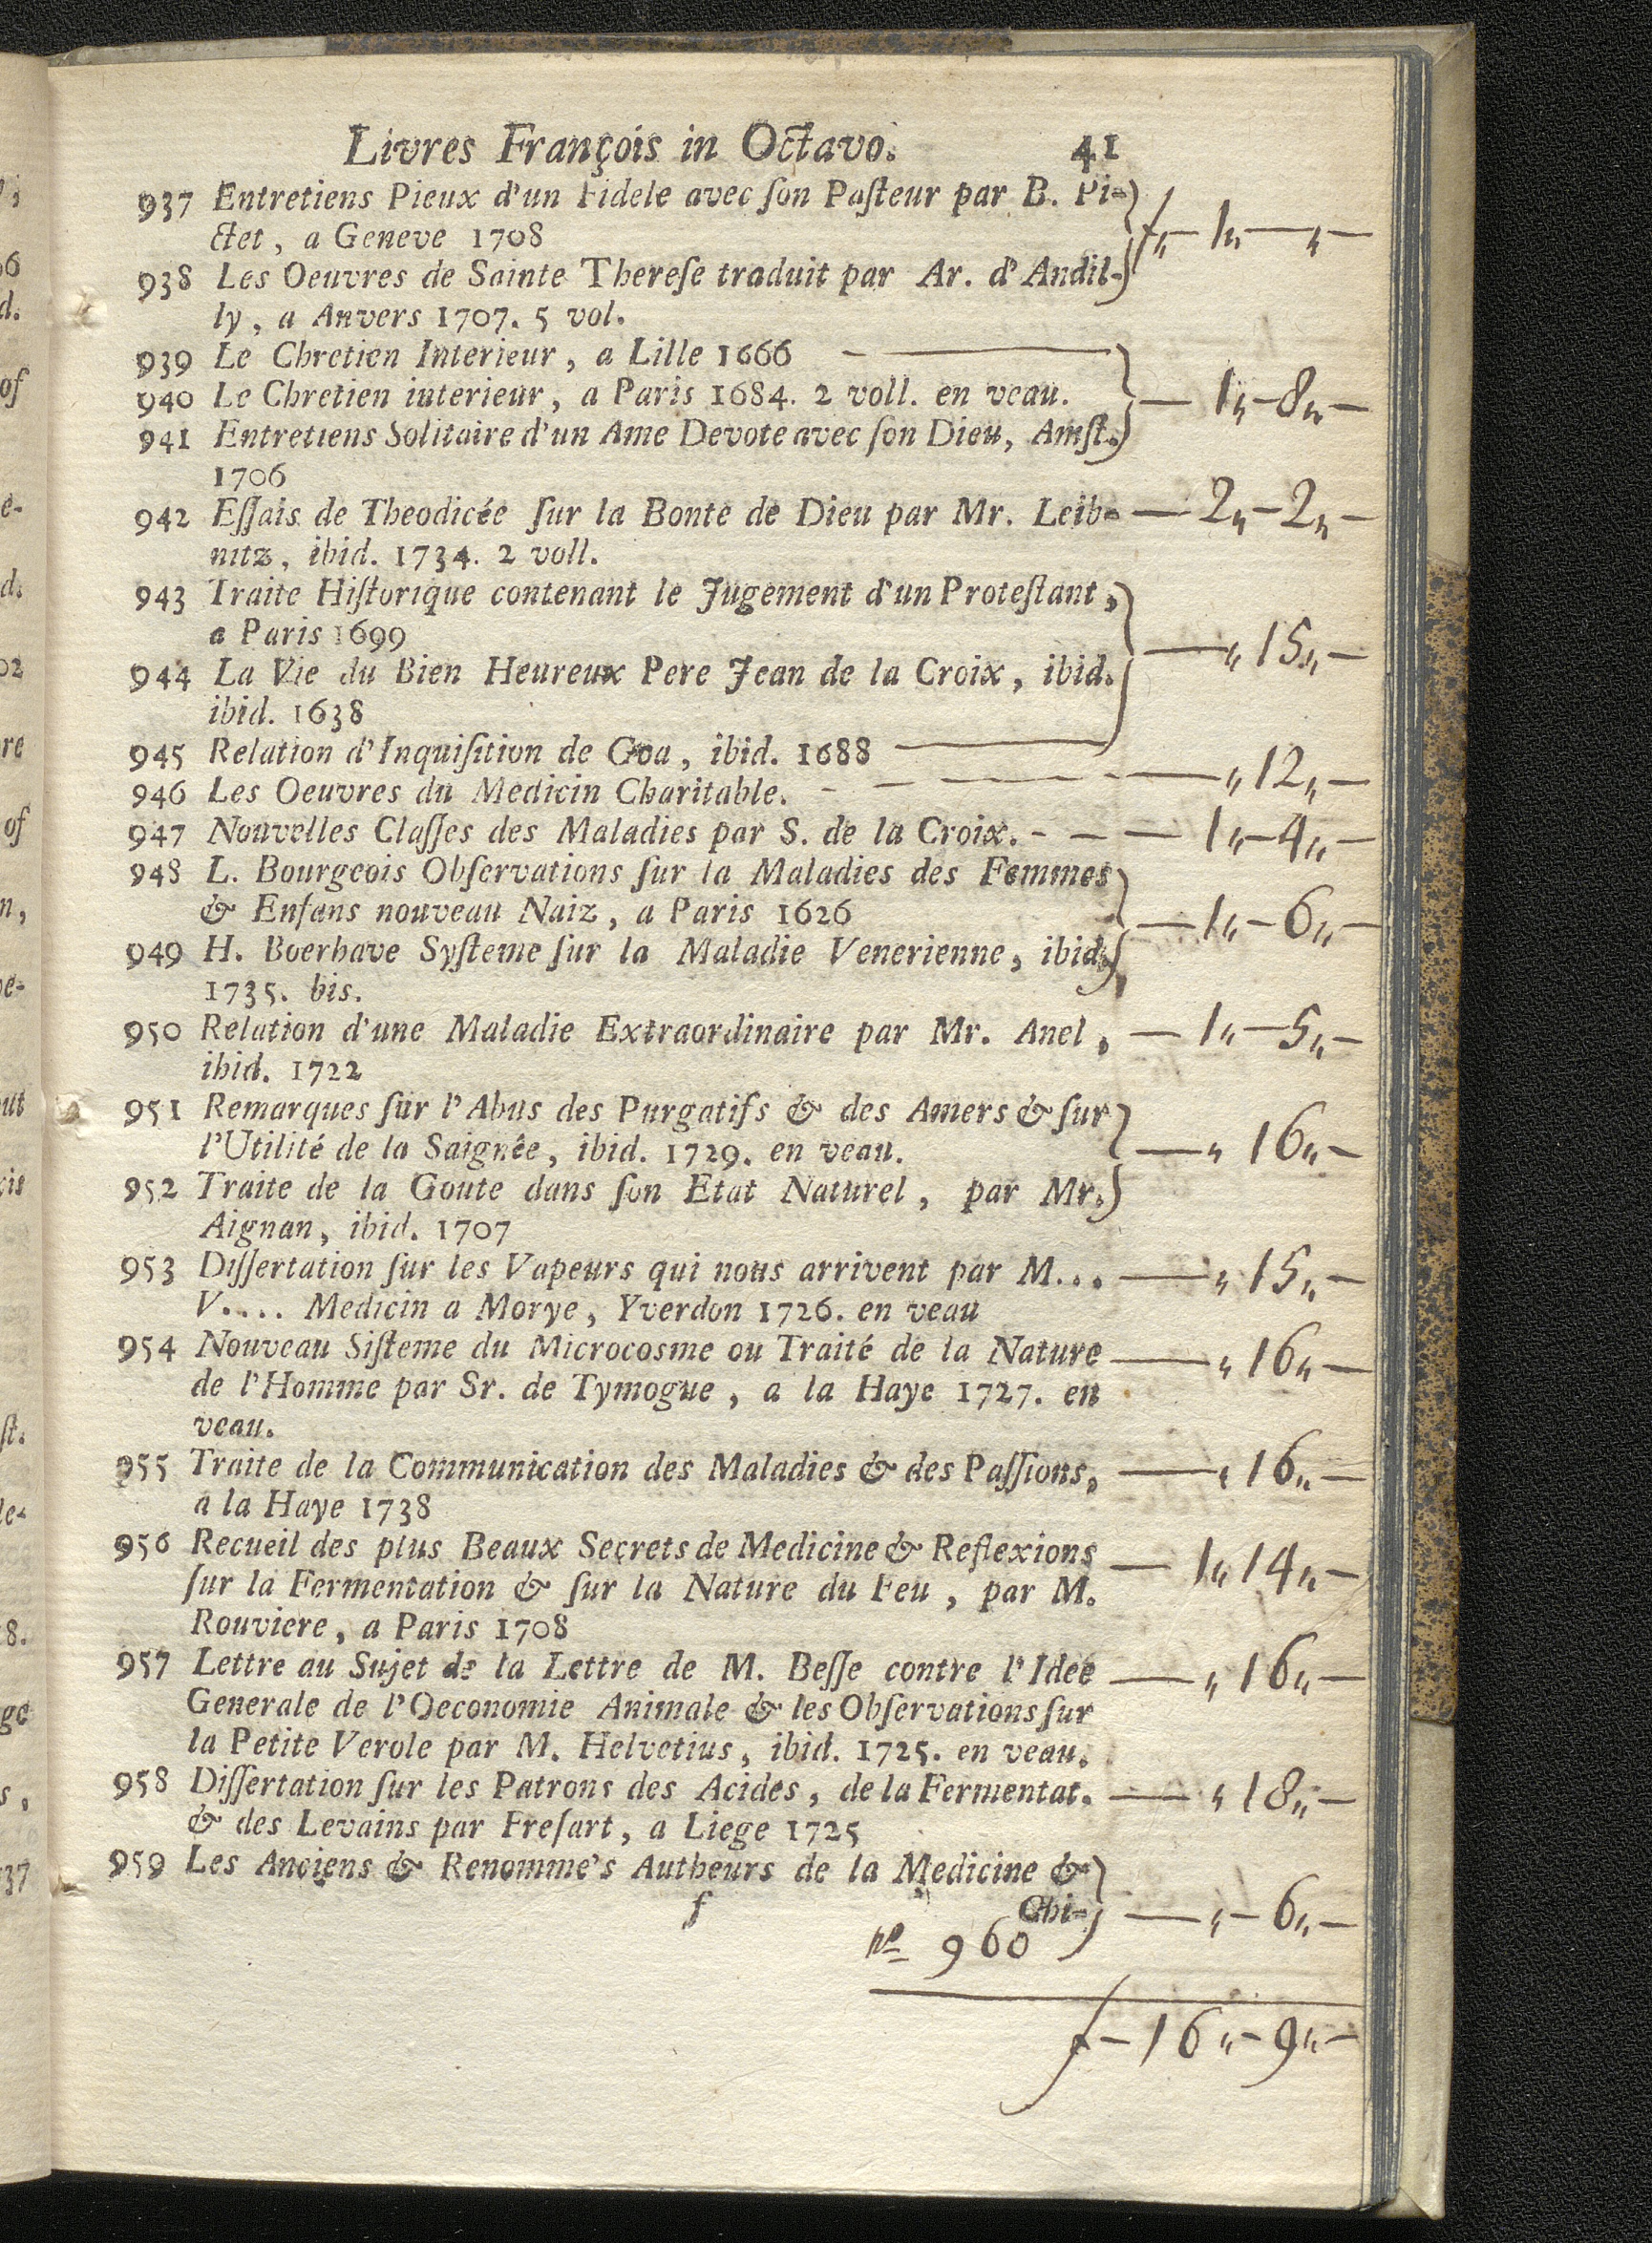 Livres François in Octavo. 41
937 Entretiens Pieux d'un Fidele avec ſon Paſteur par B. Pi-
ctet, a Geneve 1708
ƒ„— 1„—„—
938 Les Oeuvres de Sainte Thereſe traduit par Ar. d'Andil-
ly, a Anvers 1707. 5 vol.
939 Le Chretien Interieur, a Lille 1666
940 Le Chretien interieur, a Paris 1684. 2 voll. en veau. — 1„—8„—
941 Entretiens Solitaire d'un Ame Devote avec ſon Dieu, Amſt.
1706
942 Eſſais de Theodicée ſur la Bonte de Dieu par Mr. Leib- — 2„—2„—
nitz, ibid. 1734. 2 voll.
943 Traite Hiſtorique contenant le Jugement d'un Proteſtant,
a Paris 1699
— „ 15„—
944 La Vie du Bien Heureux Pere Jean de la Croix, ibid.
ibid. 1638
945 Relation d'Inquiſition de Goa, ibid. 1688
946 Les Oeuvres du Medicin Charitable. - — „ 12„—
947 Nouvelles Claſſes des Maladies par S. de la Croix. - — — 1„—4„—
948 L. Bourgeois Obſervations ſur la Maladies des Femmes
& Enfans nouveau Naiz, a Paris 1626 — 1„—6„—
949 H. Boerhave Syſteme ſur la Maladie Venerienne, ibid.
1735. bis.
950 Relation d'une Maladie Extraordinaire par Mr. Anel, — 1„—5„—
ibid. 1722
951 Remarques ſur l'Abus des Purgatifs & des Amers & ſur
l'Utilité de la Saignée, ibid. 1729. en veau. — „ 16„—
952 Traite de la Goute dans ſon Etat Naturel, par Mr.
Aignan, ibid. 1707
953 Diſſertation ſur les Vapeurs qui nous arrivent par M... — „ 15„—
V.... Medicin a Morye, Yverdon 1726. en veau
954 Nouveau Siſteme du Microcosme ou Traité de la Nature — „ 16„—
de l'Homme par Sr. de Tymogue, a la Haye 1727. en
veau.
955 Traite de la Communication des Maladies & des Paſſions, — „ 16„—
a la Haye 1738
956 Recueil des plus Beaux Secrets de Medicine & Reflexions — 1„ 14„—
ſur la Fermentation & ſur la Nature du Feu, par M.
Rouviere, a Paris 1708
957 Lettre au Sujet de la Lettre de M. Beſſe contre l'Idee — „ 16„—
Generale de l'Oeconomie Animale & les Obſervations ſur
la Petite Verole par M. Helvetius, ibid. 1725. en veau.
958 Diſſertation ſur les Patrons des Acides, de la Fermentat. — „ 18„—
& des Levains par Freſart, a Liege 1725
959 Les Anciens & Renomme's Autheurs de la Medicine &
f Chi- — „—6„—
no 960
ƒ—16„—9„—